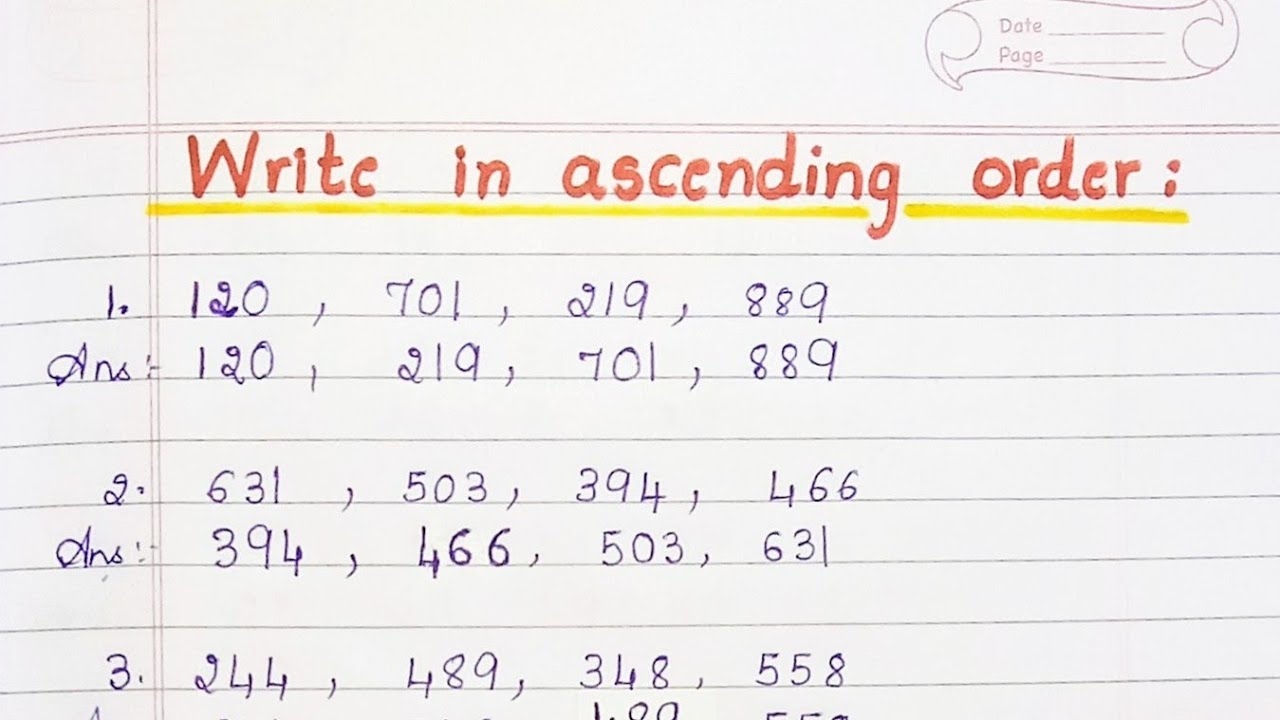 Date
Page
Write in ascending order:
1. 120 , 701 , 219 , 889
Ans:- 120 , 219 , 701 , 889
2. 631 , 503 , 394 , 466
Ans:- 394 , 466 , 503 , 631
3. 244 , 489 , 348 , 558